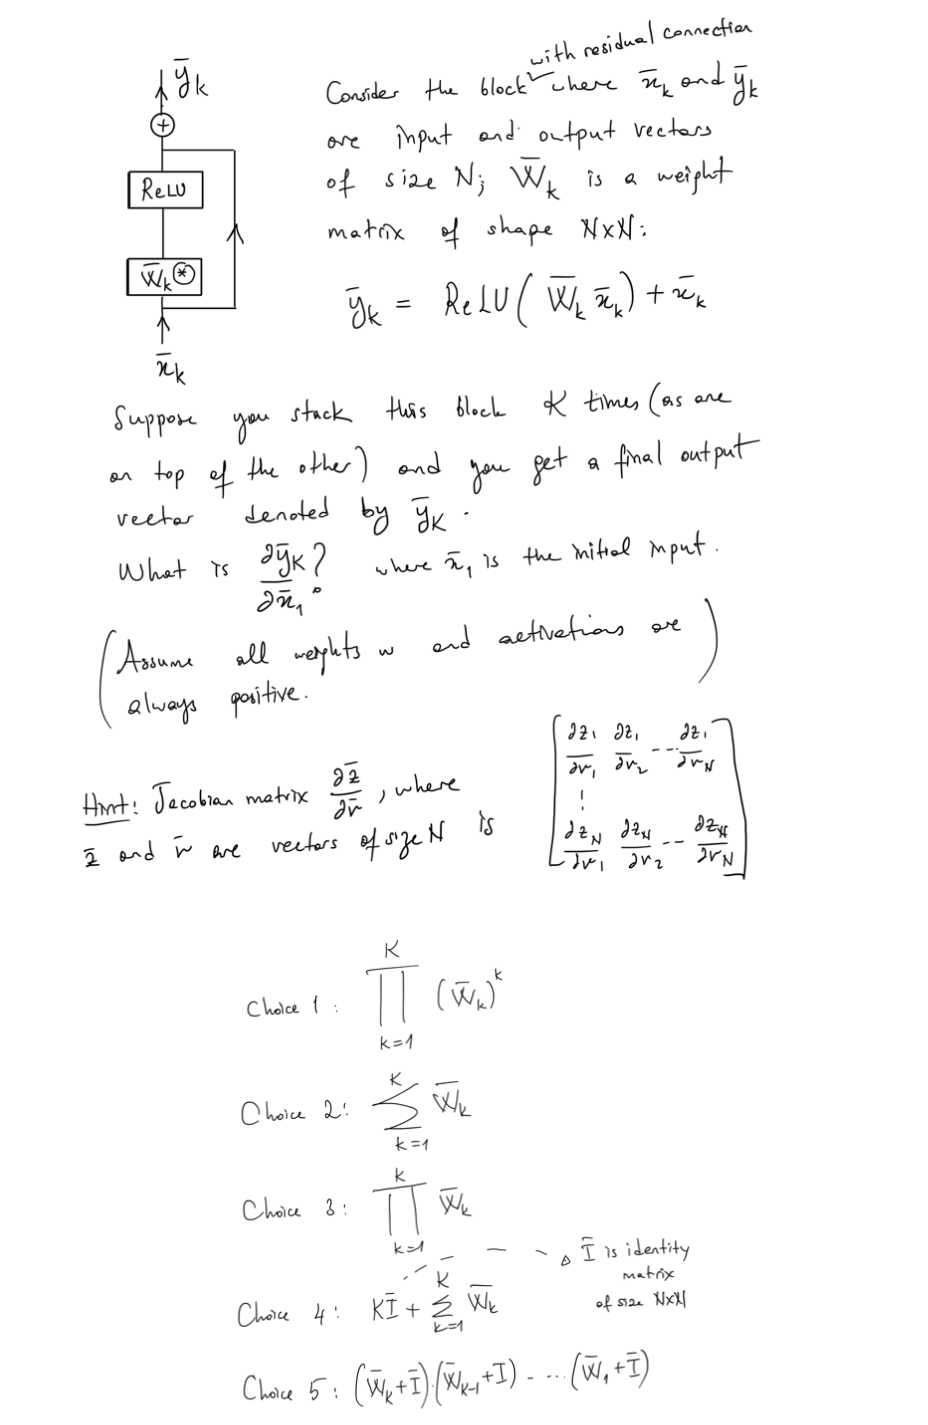 with residual connection
ȳk
Consider the block where x̄k and ȳk
+
are input and output vectors
ReLU
of size N; W̄k is a weight
matrix of shape N×N:
W̄k ⊛
ȳk = ReLU( W̄k x̄k ) + x̄k
x̄k
Suppose you stack this block K times (as one
on top of the other) and you get a final output
vector denoted by ȳK.
What is ∂ȳK/∂x̄1? where x̄1 is the initial input.
(Assume all weights w and activations are
always positive.)
Hint: Jacobian matrix ∂z̄/∂r̄, where
z̄ and r̄ are vectors of size N is
[ ∂z1/∂r1 ∂z1/∂r2 -- ∂z1/∂rN
⋮
∂zN/∂r1 ∂zN/∂r2 -- ∂zN/∂rN ]
Choice 1: ∏_{k=1}^{K} (W̄k)^k
Choice 2: ∑_{k=1}^{K} W̄k
Choice 3: ∏_{k=1}^{K} W̄k
Ī is identity
matrix
of size N×N
Choice 4: KĪ + ∑_{k=1}^{K} W̄k
Choice 5: (W̄K+Ī).(W̄K-1+I) - ... (W̄1+Ī)